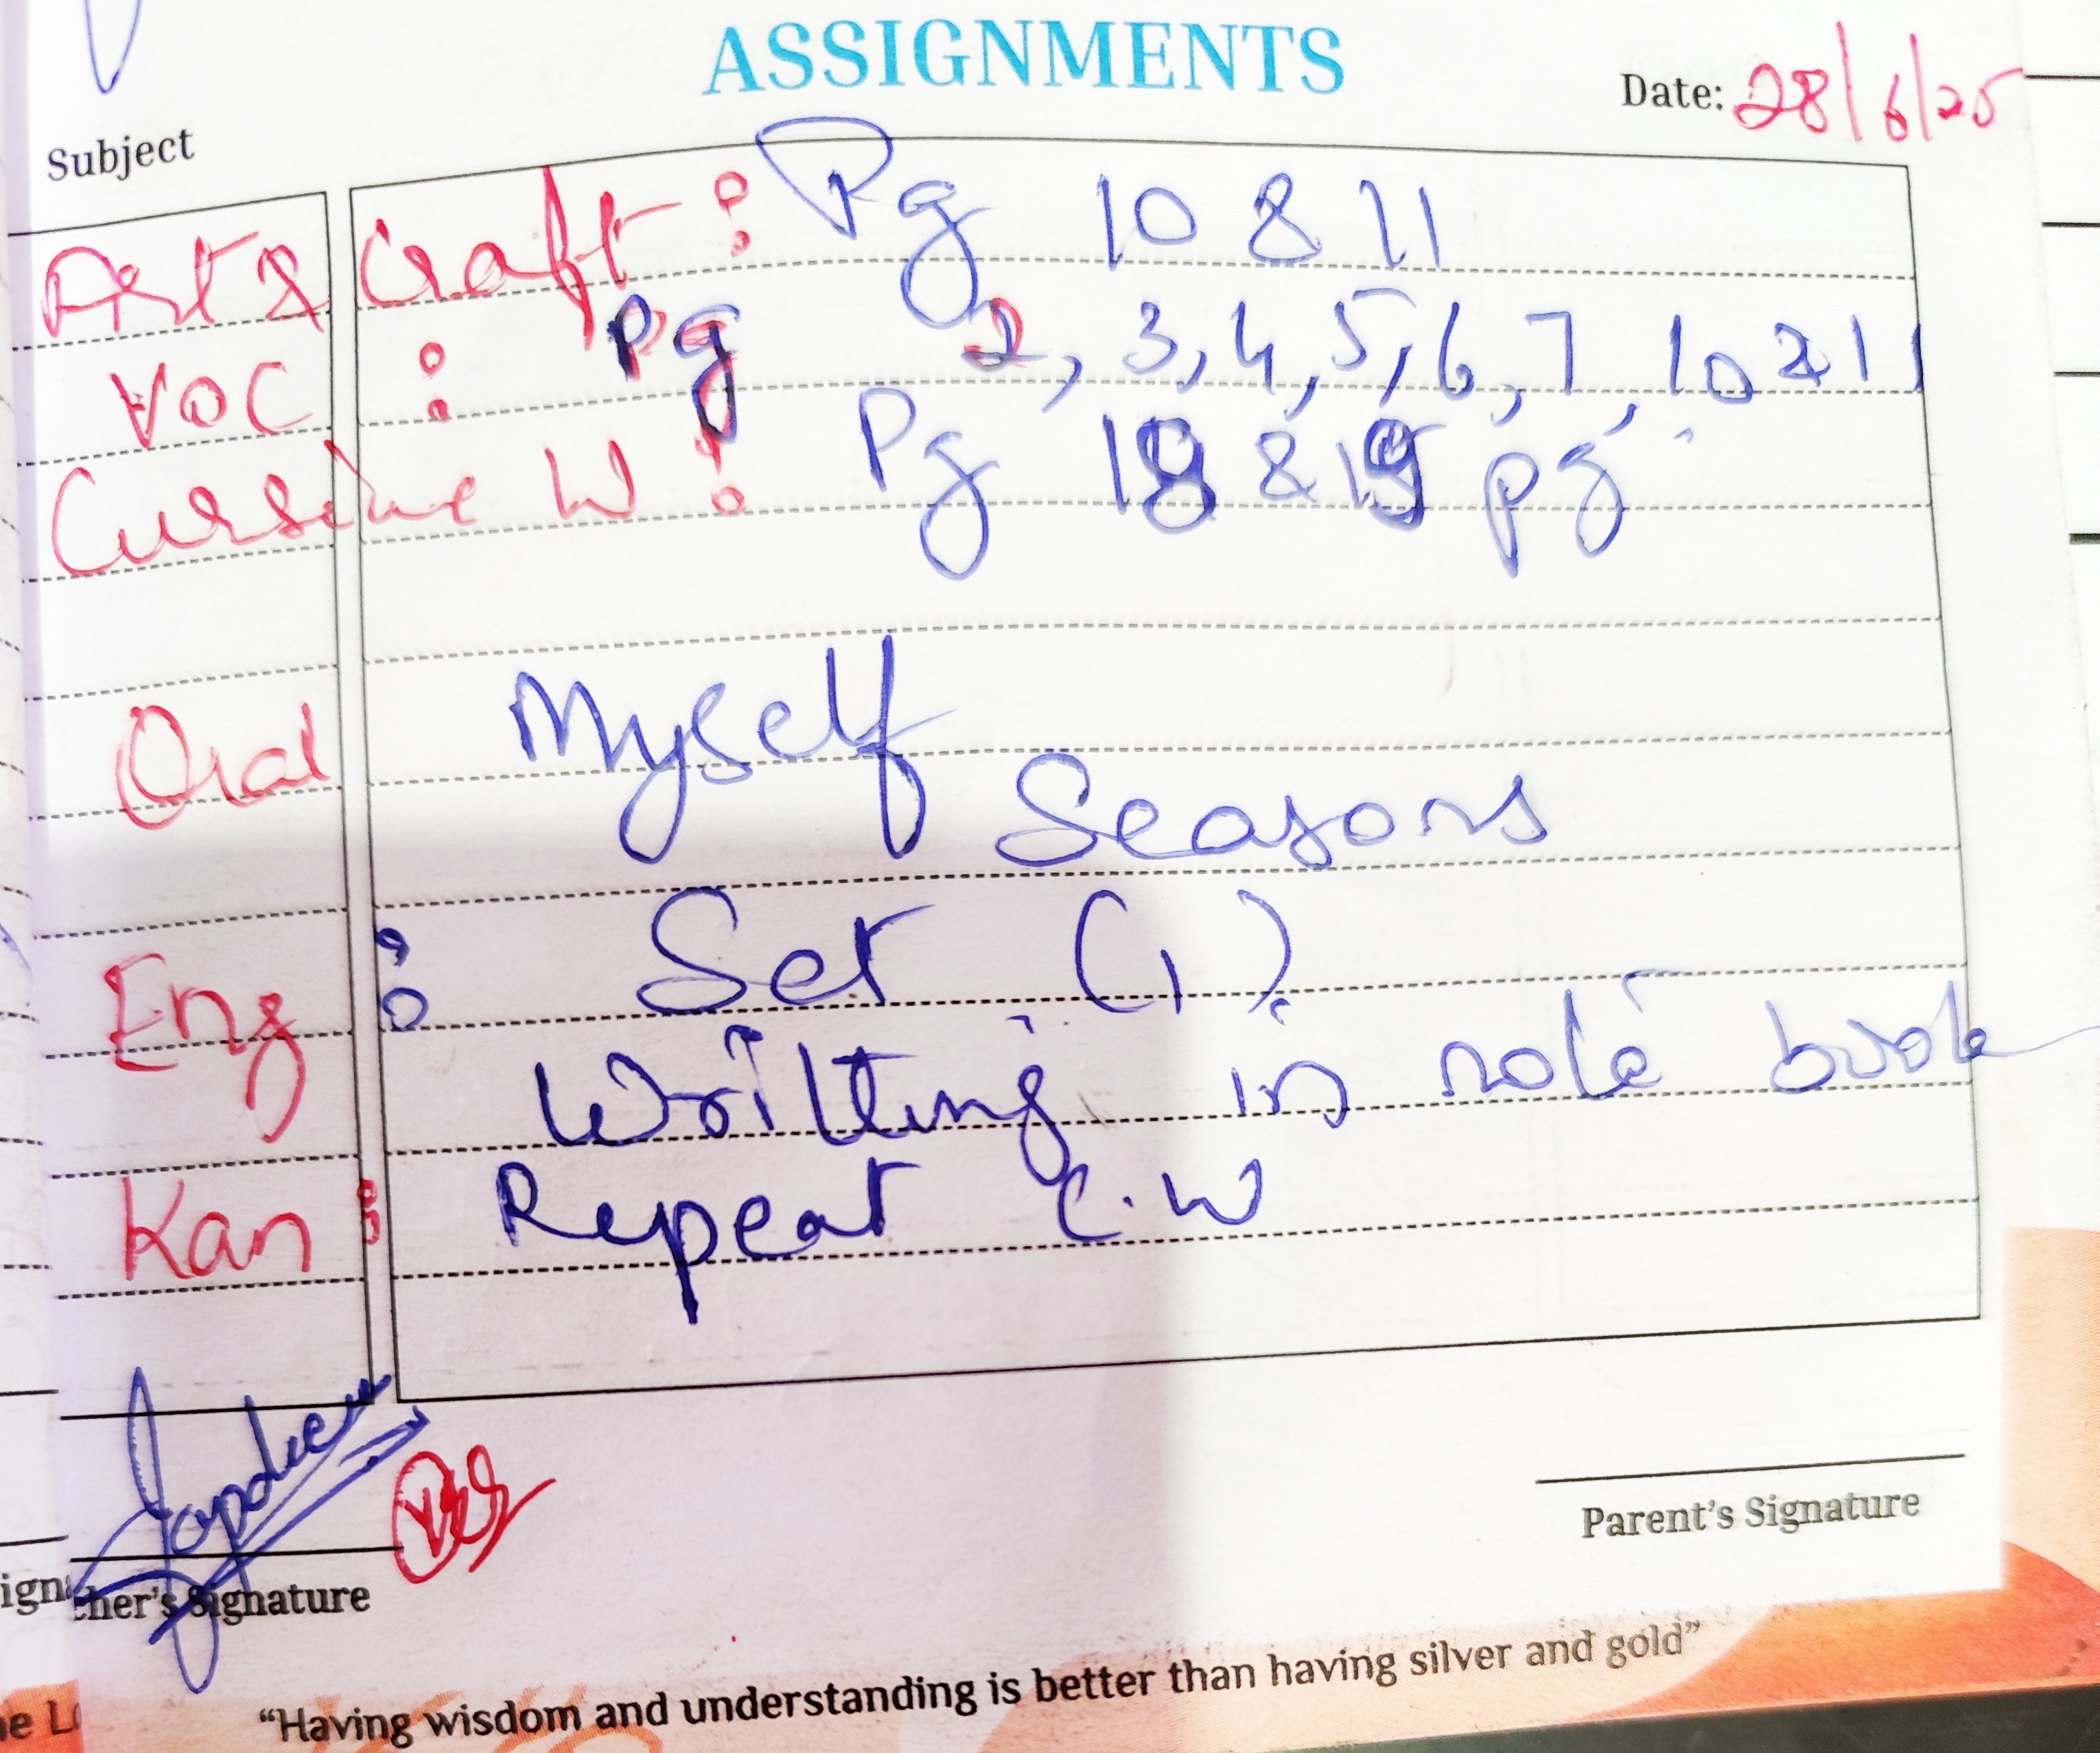 ASSIGNMENTS
Date: 28/6/25
Subject
Art & Craft : Pg 10 & 11
VOC : Pg 2, 3, 4, 5, 6, 7, 10 & 11
Cursive W : Pg 18 & 19 pg
Oral Myself
Seasons
Eng : Set (1)
Writting in note book
Kan : Repeat C.W
Parent's Signature
cher's Signature
"Having wisdom and understanding is better than having silver and gold"